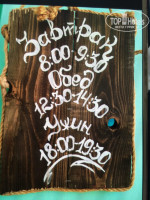 TOP HOTELS
Завтрак
8:00-9:30
Обед
12:30-14:30
Ужин
18:00-19:30